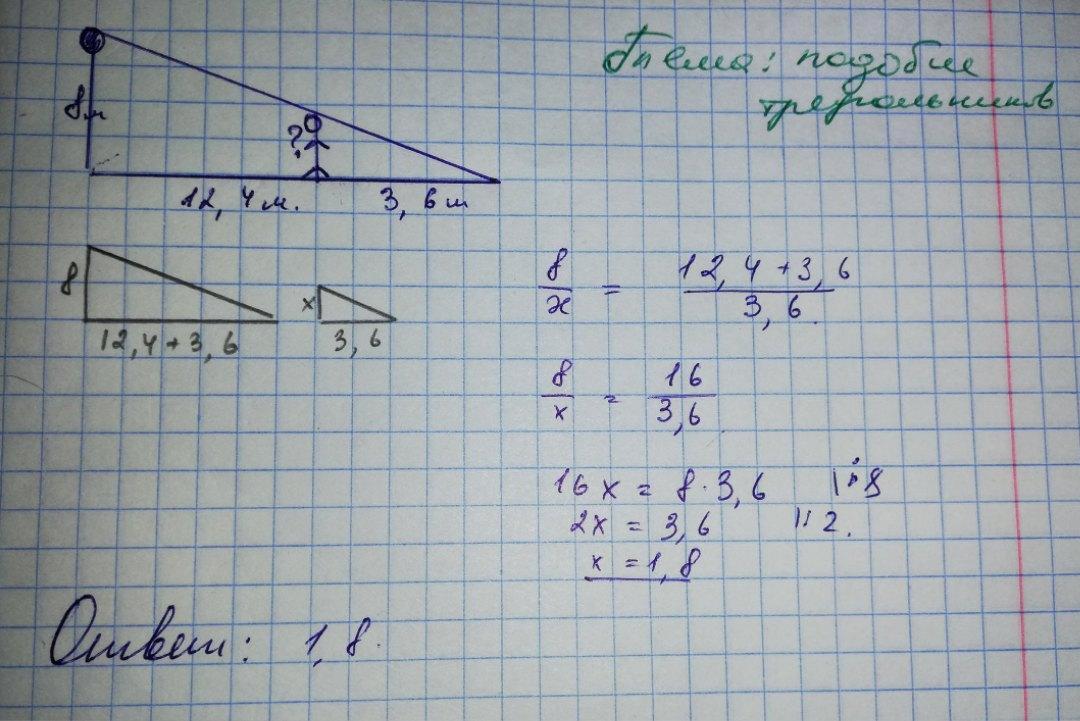 Тема: подобие
треугольников
8м
?
12,4 м.
3,6 м
8
12,4 + 3,6
x
3,6
8/x = 12,4 + 3,6/3,6.
8/x = 16/3,6
16x = 8·3,6 |:8
2x = 3,6 |:2.
x = 1,8
Ответ: 1,8.